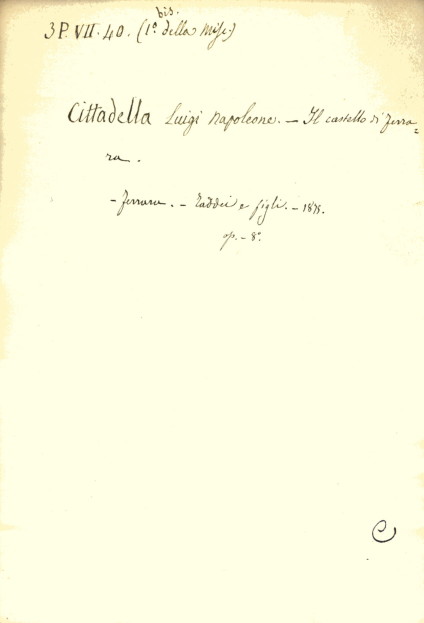 bis.
3 P. VII. 40. (1º. della Misc.)
Cittadella Luigi Napoleone. — Il castello di Ferra=
ra.
– Ferrara. – Taddei e figli. – 1875.
op. – 8º.
C